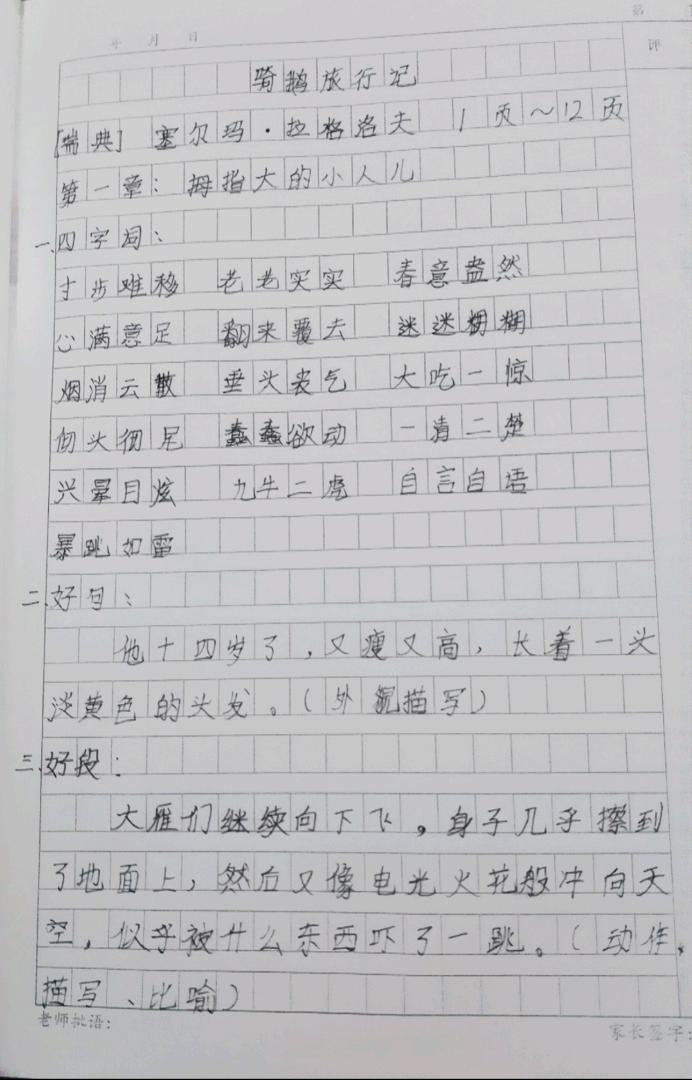 第
年 月 日
评
骑鹅旅行记
[瑞典] 塞尔玛·拉格洛夫 1页~12页
第一章：拇指大的小人儿
一、四字词：
寸步难移 老老实实 春意盎然
心满意足 翻来覆去 迷迷糊糊
烟消云散 垂头丧气 大吃一惊
彻头彻尾 蠢蠢欲动 一清二楚
头晕目炫 九牛二虎 自言自语
暴跳如雷
二、好句：
他十四岁了，又瘦又高，长着一头
淡黄色的头发。（外貌描写）
三、好段：
大雁们继续向下飞，身子几乎擦到
了地面上，然后又像电光火花般冲向天
空，似乎被什么东西吓了一跳。（动作、
描写、比喻）
老师批语： 家长签字：